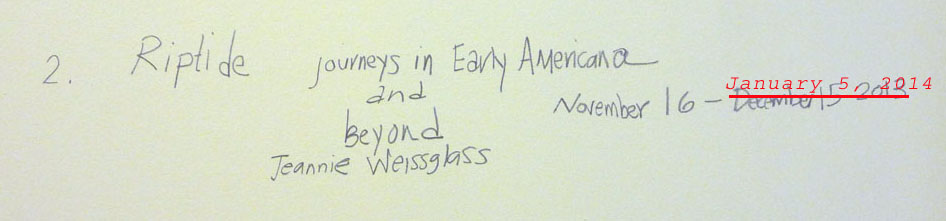 2. Riptide journeys in Early Americana
and
beyond
Jeannie Weissglass
January 5, 2014
November 16 - December 15 2013